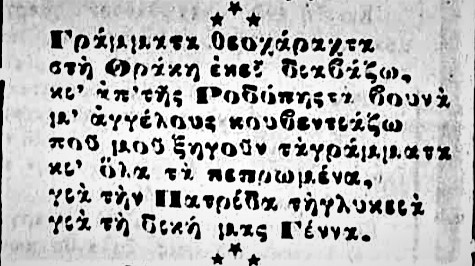 Γράμματα θεοχάραχτα
στὴ Θράκη ἐκεῖ διαβάζω,
κι' ἀπ' τῆς Ροδόπης τὰ βουνὰ
μ' ἀγγέλους κουβεντιάζω
ποῦ μοῦ ξηγοῦν τὰ γράμματα
κι' ὅλα τὰ πεπρωμένα,
γιὰ τὴν Πατρίδα τὴ γλυκειὰ
γιὰ τὴ δική μας Γέννα.